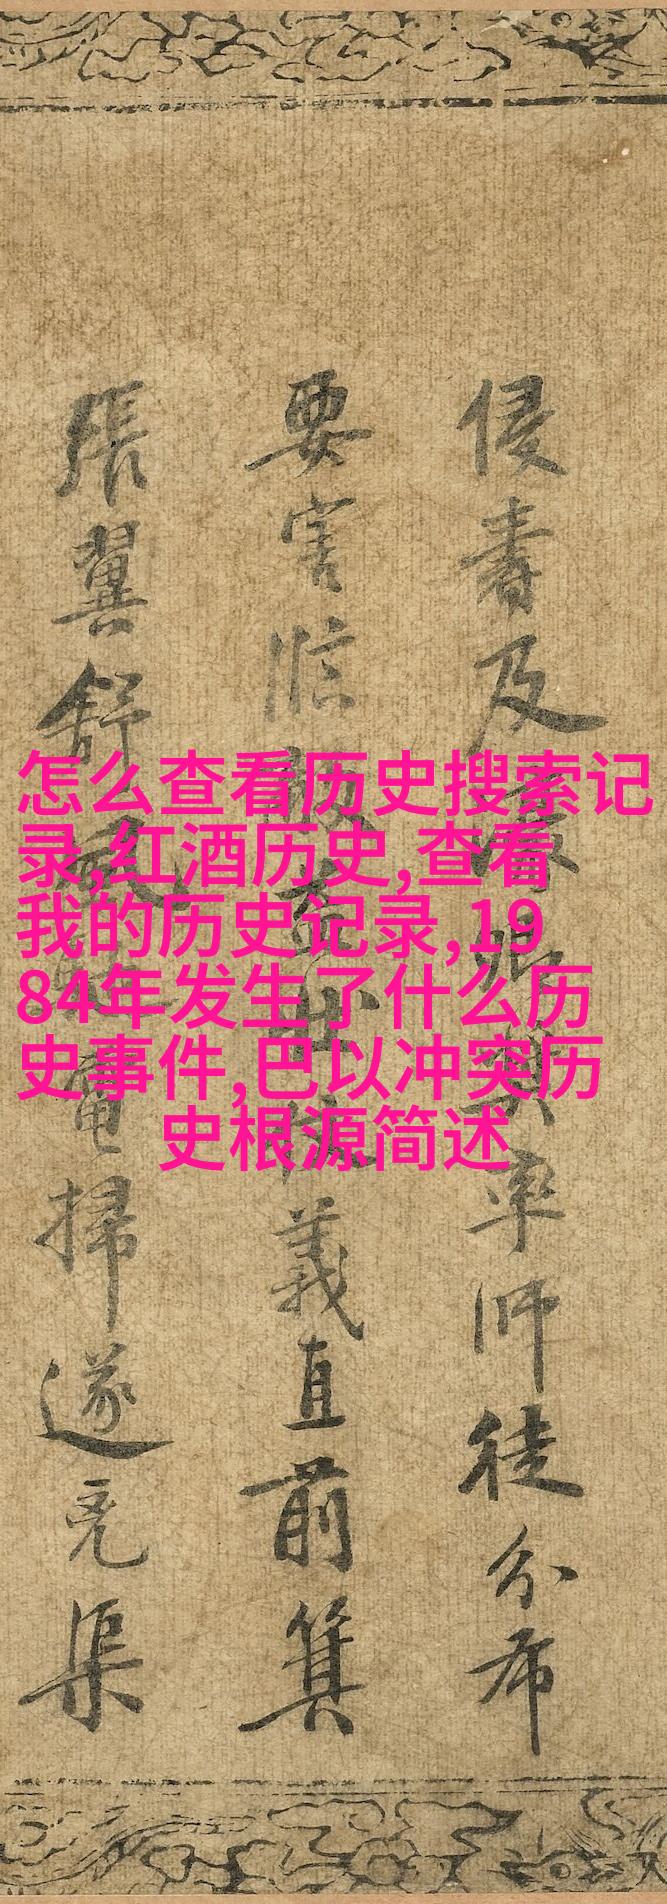 怎么查看历史搜索记
录,红酒历史,查看
我的历史记录,19
84年发生了什么历
史事件,巴以冲突历
史根源简述
侵書及 率師徒分布
要害臨 義直前箕
張翼舒 電掃遂 渠